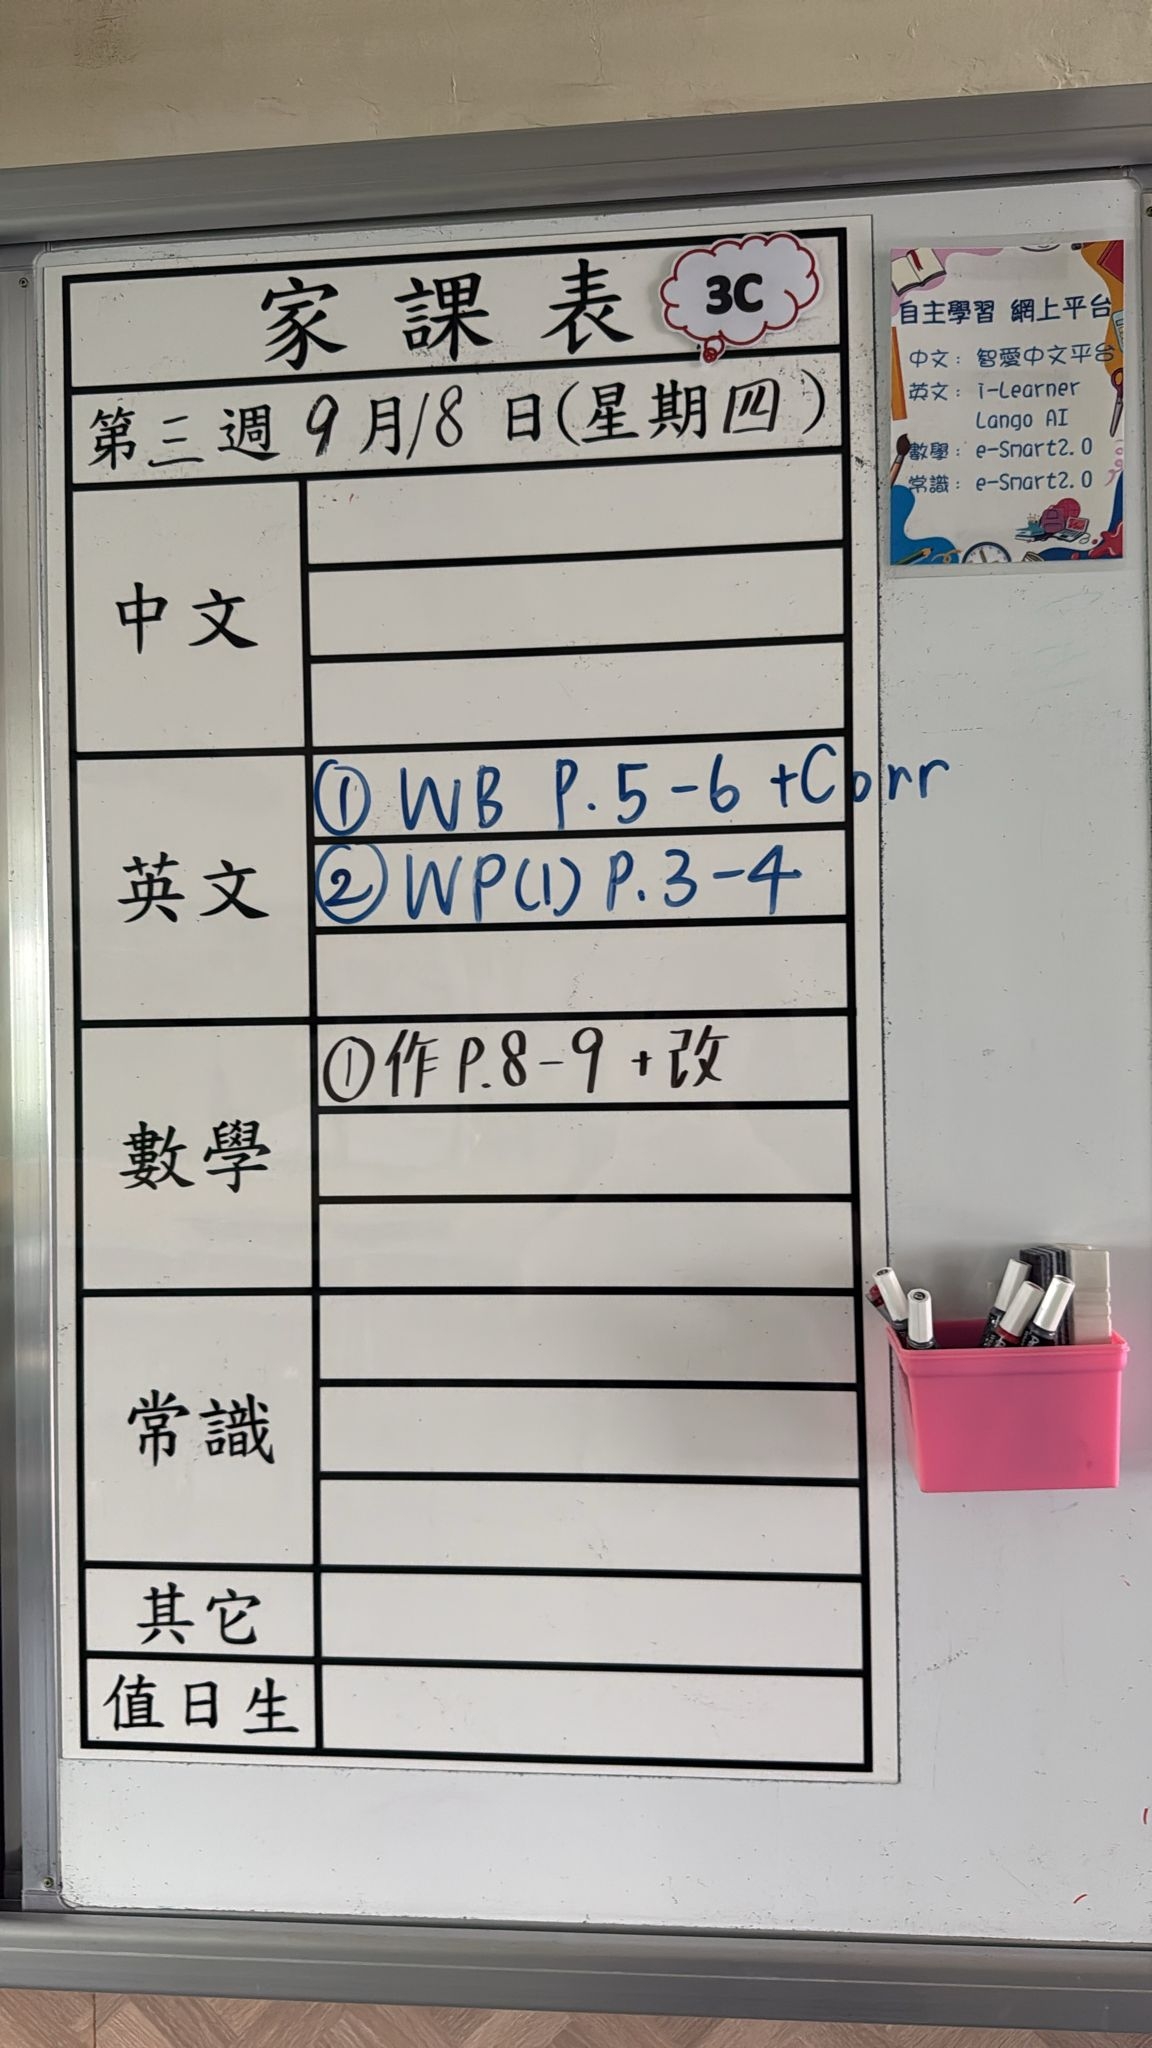 家課表
3C
第三週 9月18日(星期四)
中文
英文
① WB P.5-6 +Corr
② WP(1) P.3-4
數學
①作P.8-9 +改
常識
其它
值日生
自主學習 網上平台
中文: 智愛中文平台
英文: i-Learner
Lango AI
數學: e-Smart2.0
常識: e-Smart2.0